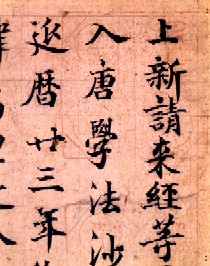 上新請来經等
入唐學法沙
延暦廿三年